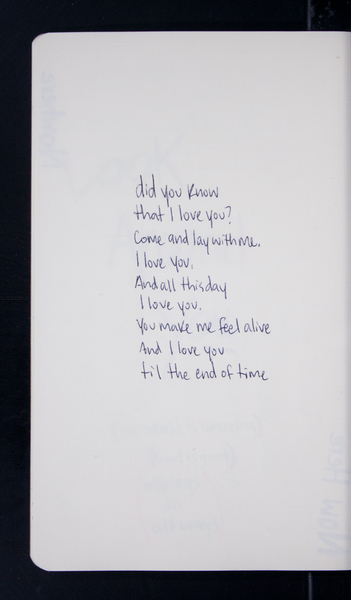 did you know
that I love you?
Come and lay with me.
I love you.
And all this day
I love you.
You make me feel alive
And I love you
til the end of time